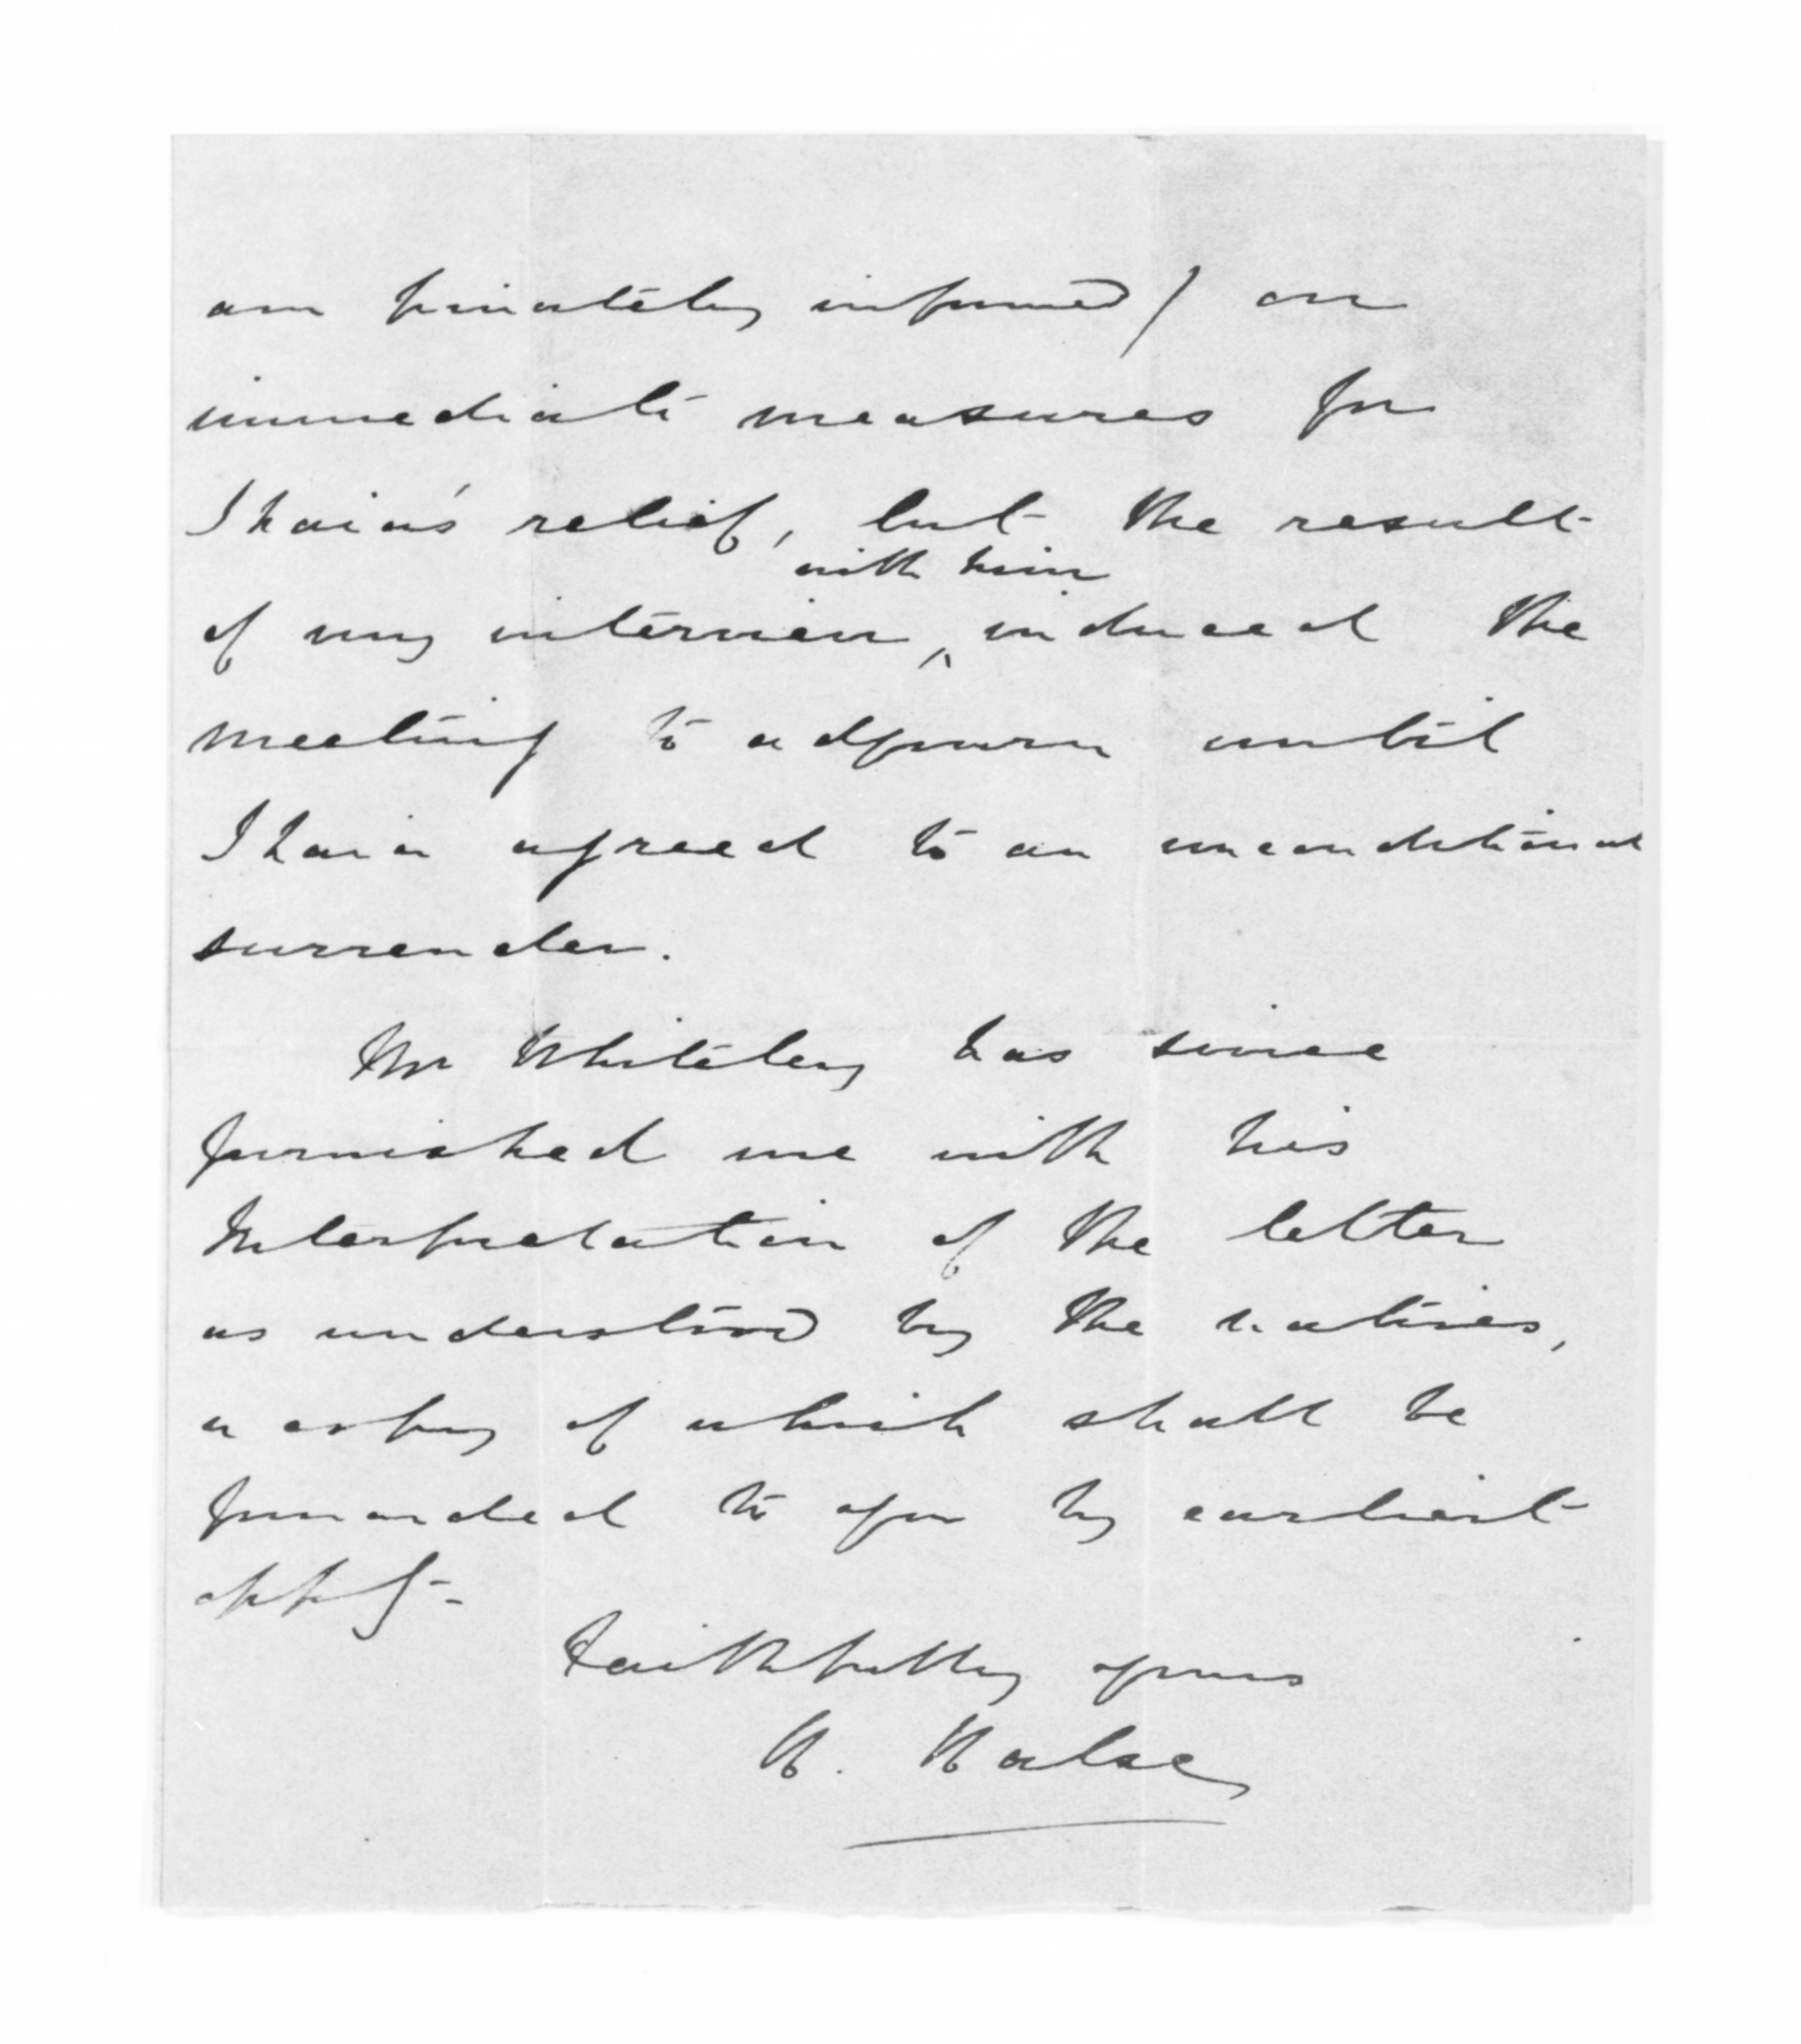 am privately informed) on
immediate measures for
Ihaia's relief, but the result
with him
of my interview ^ induced the
meeting to adjourn until
Ihaia agreed to an unconditional
surrender.
Mr Whiteley has since
furnished me with his
Interpretation of the letter
as understood by the natives,
a copy of which shall be
forwarded to you by earliest
oppy-
Faithfully yours
H. Halse